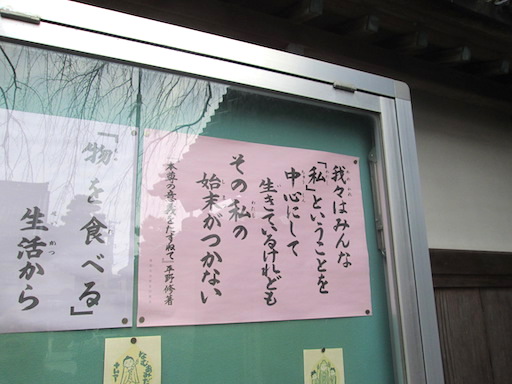 我々はみんな
「私」ということを
中心にして
生きているけれども
その「私」の
始末がつかない
『本尊の意義をたずねて』平野修著
「物を食べる」
生活から